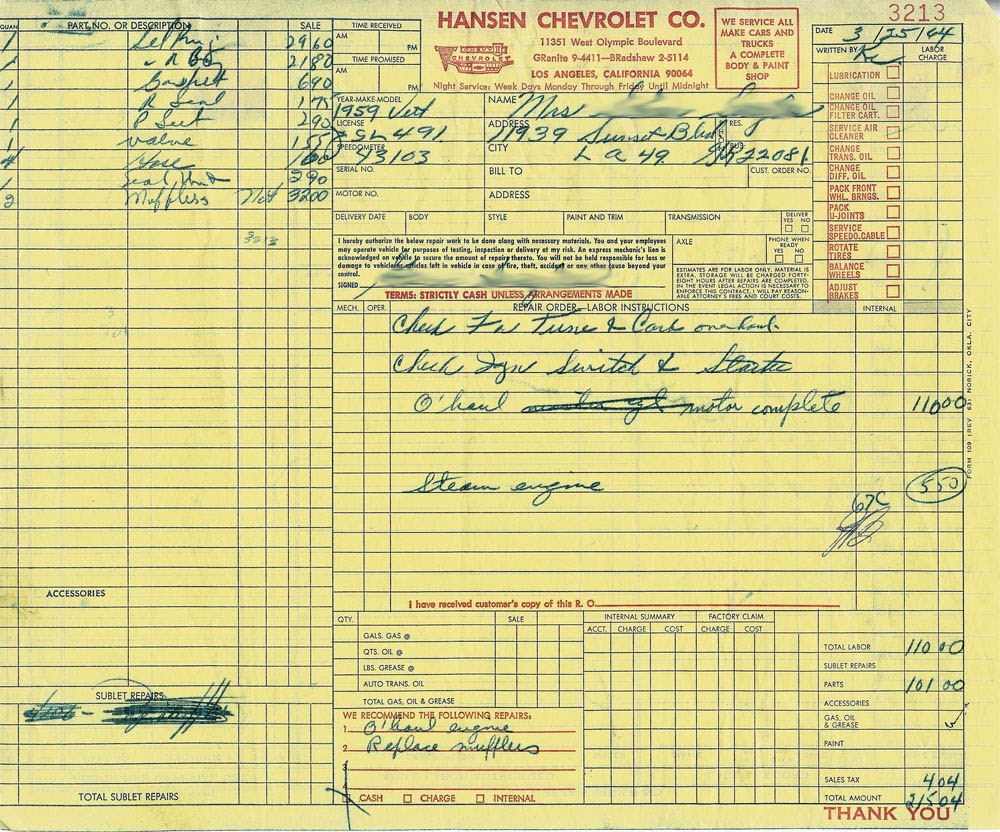 HANSEN CHEVROLET CO.
11351 West Olympic Boulevard
GRanite 9-4411—BRadshaw 2-5114
LOS ANGELES, CALIFORNIA 90064
Night Service: Week Days Monday Through Friday Until Midnight
CHEVROLET
WE SERVICE ALL
MAKE CARS AND
TRUCKS
A COMPLETE
BODY & PAINT
SHOP
3213
DATE 3/25/64
WRITTEN BY
LABOR CHARGE
QUAN PART NO. OR DESCRIPTION SALE
1 Set 2960
1 2180
1 Gasket 690
1 R Seal 175
1 290
1 Valve 155
4 160
1 390
2 Mufflers Net 3200
3213
ACCESSORIES
SUBLET REPAIRS
TOTAL SUBLET REPAIRS
TIME RECEIVED
AM PM
TIME PROMISED
AM PM
YEAR-MAKE-MODEL
1959 Vet
LICENSE
SL 491
SPEEDOMETER
43103
SERIAL NO.
MOTOR NO.
NAME Mrs
ADDRESS 11939 Sunset Blvd
RES.
CITY L A 49
BUS. 22081
BILL TO
CUST. ORDER NO.
ADDRESS
DELIVERY DATE BODY STYLE PAINT AND TRIM TRANSMISSION DELIVER YES NO
I hereby authorize the below repair work to be done along with necessary materials. You and your employees
may operate vehicle for purposes of testing, inspection or delivery at my risk. An express mechanic's lien is
acknowledged on vehicle to secure the amount of repairs thereto. You will not be held responsible for loss or
damage to vehicle or articles left in vehicle in case of fire, theft, accident or any other cause beyond your
control.
SIGNED
AXLE
PHONE WHEN READY YES NO
ESTIMATES ARE FOR LABOR ONLY, MATERIAL IS
EXTRA. STORAGE WILL BE CHARGED FORTY-
EIGHT HOURS AFTER REPAIRS ARE COMPLETED.
IN THE EVENT LEGAL ACTION IS NECESSARY TO
ENFORCE THIS CONTRACT, I WILL PAY REASON-
ABLE ATTORNEY'S FEES AND COURT COSTS.
TERMS: STRICTLY CASH UNLESS ARRANGEMENTS MADE
LUBRICATION
CHANGE OIL
CHANGE OIL FILTER CART.
SERVICE AIR CLEANER
CHANGE TRANS. OIL
CHANGE DIFF. OIL
PACK FRONT WHL. BRNGS.
PACK U-JOINTS
SERVICE SPEEDO.CABLE
ROTATE TIRES
BALANCE WHEELS
ADJUST BRAKES
MECH. OPER. REPAIR ORDER—LABOR INSTRUCTIONS INTERNAL
Check For Tune & Carb overhaul
Check Ign Switch & Starter
O'haul motor complete 11000
Steam engine 550
67C
FORM 109 (REV 63) NORICK, OKLA. CITY
I have received customer's copy of this R. O.
QTY. SALE
GALS. GAS @
QTS. OIL @
LBS. GREASE @
AUTO TRANS. OIL
TOTAL GAS, OIL & GREASE
INTERNAL SUMMARY FACTORY CLAIM
ACCT. CHARGE COST CHARGE COST
WE RECOMMEND THE FOLLOWING REPAIRS:
1. O'haul engine
2. Replace mufflers
3.
4.
CASH CHARGE INTERNAL
TOTAL LABOR 110 00
SUBLET REPAIRS
PARTS 101 00
ACCESSORIES
GAS, OIL & GREASE
PAINT
SALES TAX 4 04
TOTAL AMOUNT 215 04
THANK YOU